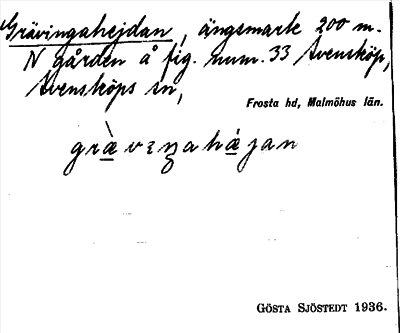 Grävingahejdan, ängsmark 200 m.
N gården å fig. num. 33 Svensköp,
Svensköps sn,
Frosta hd, Malmöhus län.
græ̀vɪŋahǽjan
GÖSTA SJÖSTEDT 1936.